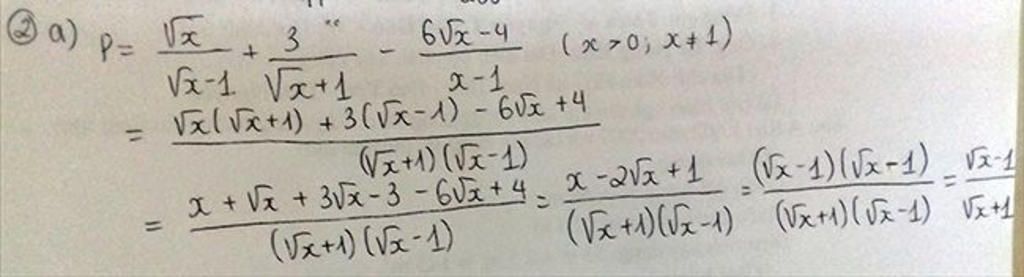 ② a) P = √x/(√x-1) + 3/(√x+1) - (6√x-4)/(x-1) (x>0; x≠1)
= (√x(√x+1) + 3(√x-1) - 6√x+4)/((√x+1)(√x-1))
= (x + √x + 3√x - 3 - 6√x + 4)/((√x+1)(√x-1)) = (x - 2√x + 1)/((√x+1)(√x-1)) = ((√x-1)(√x-1))/((√x+1)(√x-1)) = (√x-1)/(√x+1)